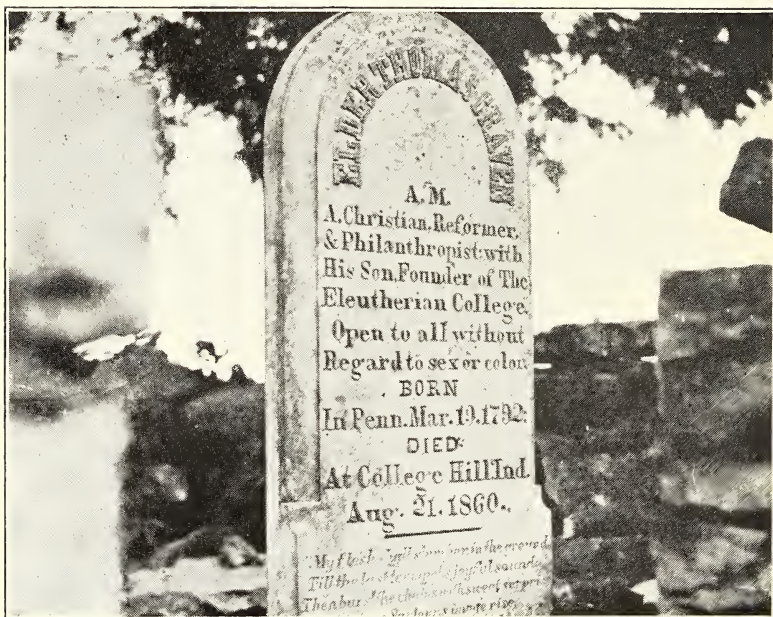 ELDER THOMAS CRAVEN
A.M.
A.Christian,Reformer,
& Philanthropist:with
His Son,Founder of The
Eleutherian College,
Open to all without
Regard to sex or color.
BORN
In Penn.Mar.19.1792:
DIED:
At College Hill Ind.
Aug. 21.1860.
My flesh shall slumber in the ground
Till the last trumpet's joyful sound
Then burst the chains with sweet surprise